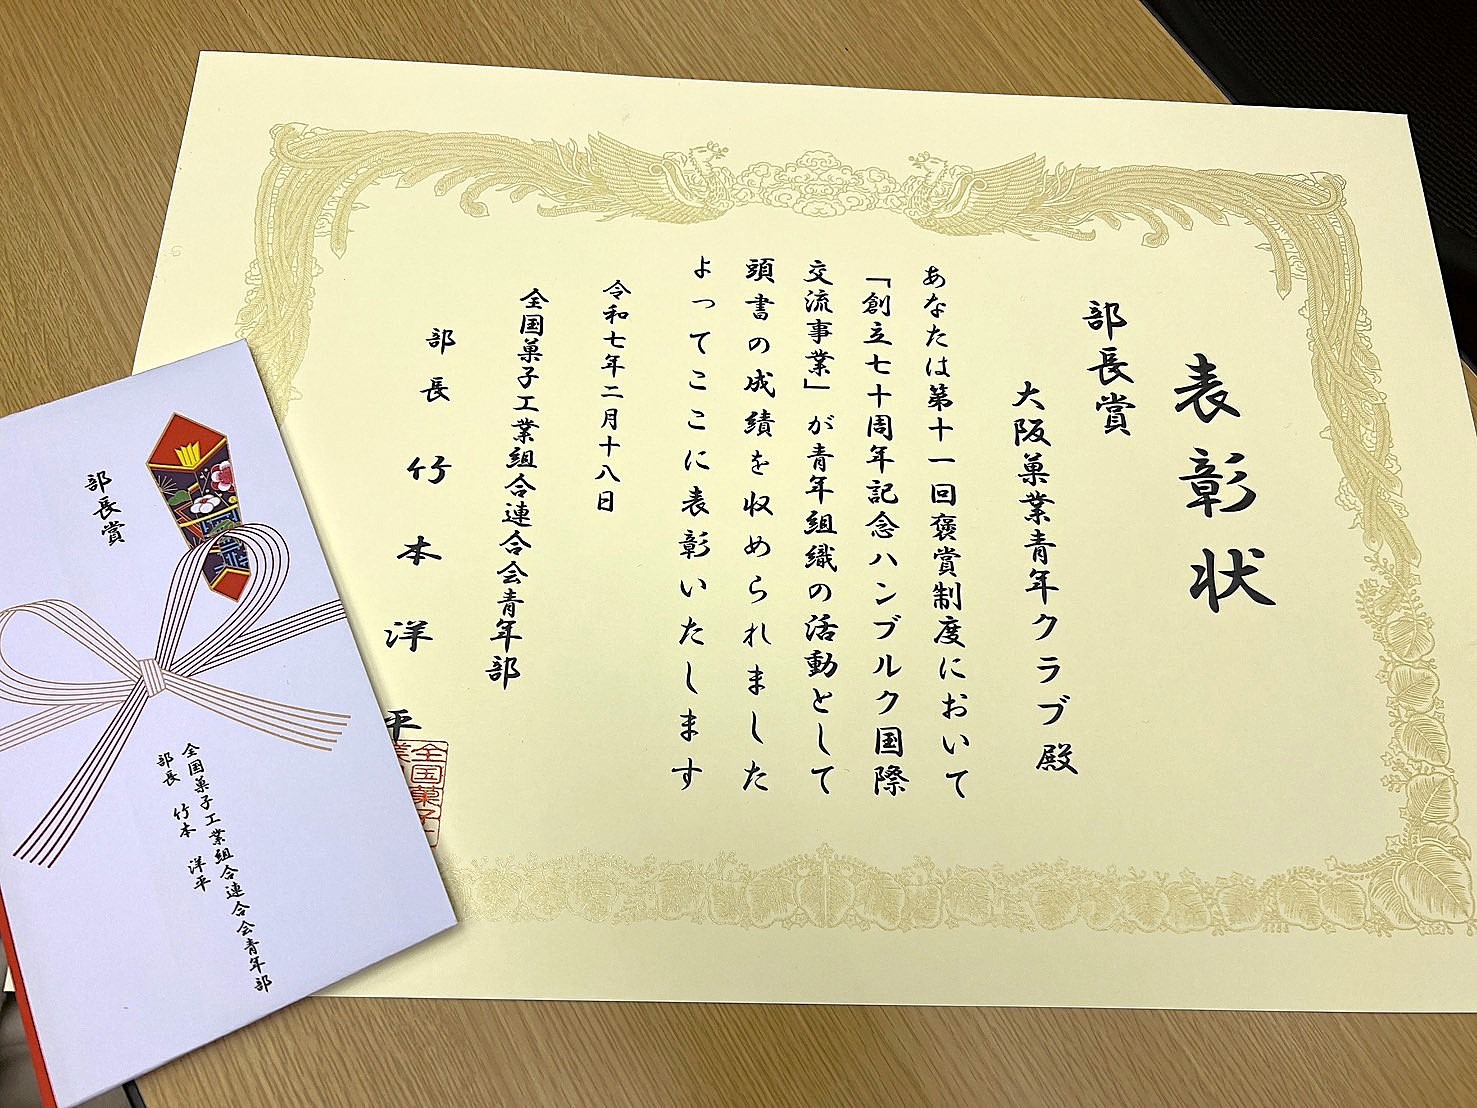 表彰状
部長賞
大阪菓業青年クラブ殿
あなたは第十一回褒賞制度において
「創立七十周年記念ハンブルク国際
交流事業」が青年組織の活動として
頭書の成績を収められました
よってここに表彰いたします
令和七年二月十八日
全国菓子工業組合連合会青年部
部長 竹本洋平
全国菓子
部長賞
全国菓子工業組合連合会青年部
部長 竹本 洋平